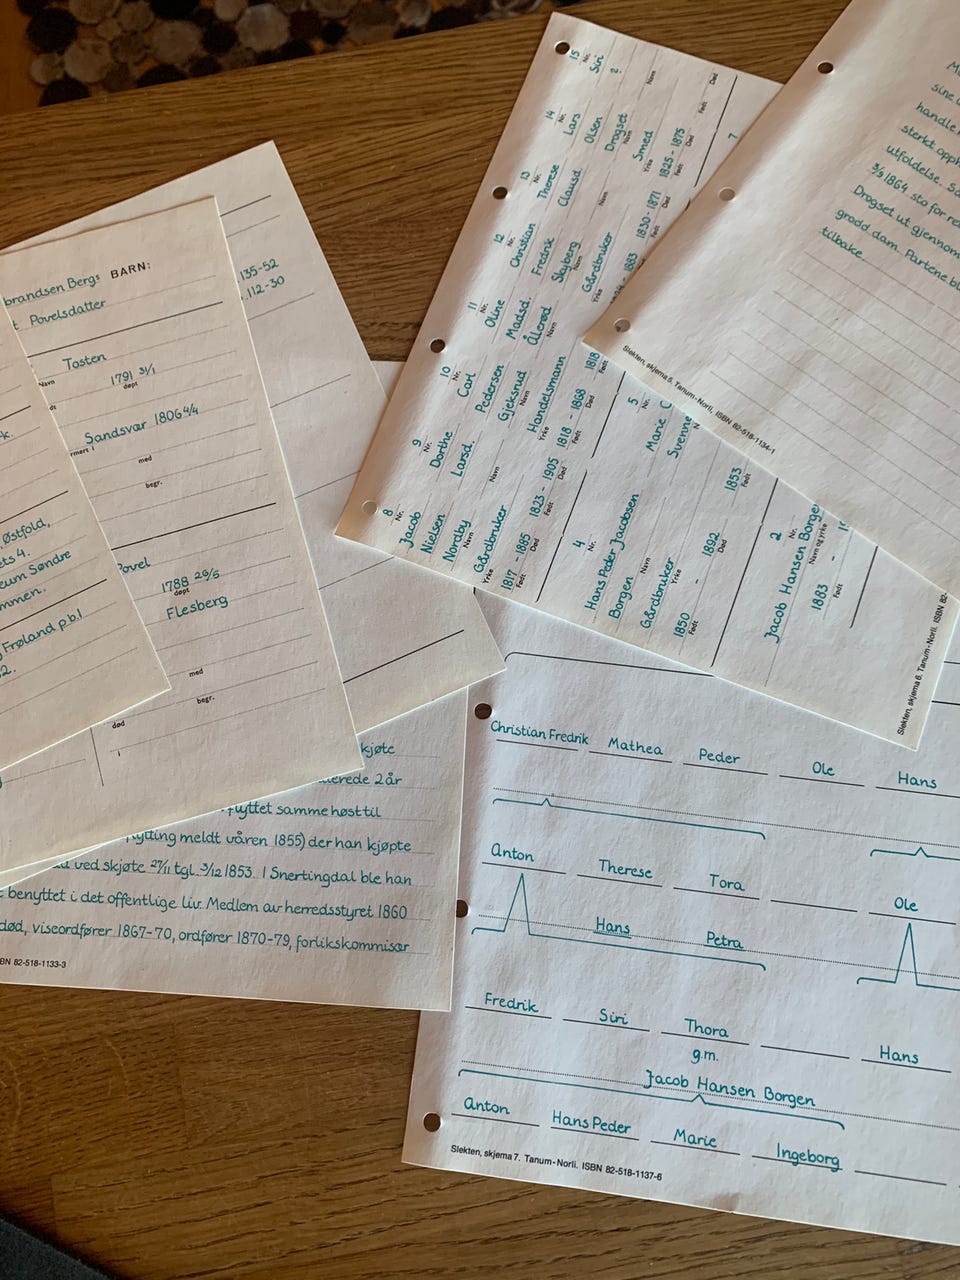 brandsen Bergs BARN:
Povelsdatter
Tosten
Navn
1791 31/1
døpt
Sandsvær 1806 4/4
med
begr.
Povel
1788 26/5
døpt
Flesberg
med
begr.
død
135-52
112-30
k.
Østfold,
ets 4.
eum Søndre
mmen.
Frøland p.b.1
2.
kjøte
erede 2 år
flyttet samme høst til
flytting meldt våren 1855) der han kjøpte
ved skjøte 27/11 tgl. 3/12 1853. I Snertingdal ble han
benyttet i det offentlige liv. Medlem av herredsstyret 1860
død, viseordfører 1867-70, ordfører 1870-79, forlikskommisær
BN 82-518-1133-3
8
Nr.
Jacob
Nielsen
Nordby
Navn
Gårdbruker
Yrke
1817 - 1885
Født Død
9
Nr.
Dorthe
Larsd.
Navn
1823 - 1905
Født Død
10
Nr.
Carl
Pedersen
Gjeksrud
Navn
Handelsmann
Yrke
1818 - 1868
Født Død
11
Nr.
Oline
Madsd.
Ålerød
Navn
1818
Født
12
Nr.
Christian
Fredrik
Skyberg
Navn
Gårdbruker
Yrke
1883
13
Nr.
Therese
Clausd
Navn
1830 - 1871
Født Død
14
Nr.
Lars
Olsen
Dragset
Navn
Smed
Yrke
1825 - 1875
Født Død
15
Nr.
Siri
?
Navn
Født Død
4
Nr.
Hans Peder Jacobsen
Borgen
Navn
Gårdbruker
Yrke
1850 - 1892
Født Død
5
Nr.
Marie C
Svenne
1853
Født
7
2
Nr.
Jacob Hansen Borgen
Navn og yrke
1883 -
Født
Slekten, skjema 6. Tanum-Norli. ISBN 82-
sine
handle
sterkt opph
utfoldelse. Så
3/3 1864 sto for re
Dragset ut gjennom
grodd dam. Partene bl
tilbake.
Slekten, skjema 5. Tanum-Norli. ISBN 82-518-1134-1
Christian Fredrik Mathea Peder Ole Hans
Anton Therese Tora Ole
Hans Petra
Fredrik Siri Thora Hans
g.m.
Jacob Hansen Borgen
Anton Hans Peder Marie Ingeborg
Slekten, skjema 7. Tanum-Norli. ISBN 82-518-1137-6